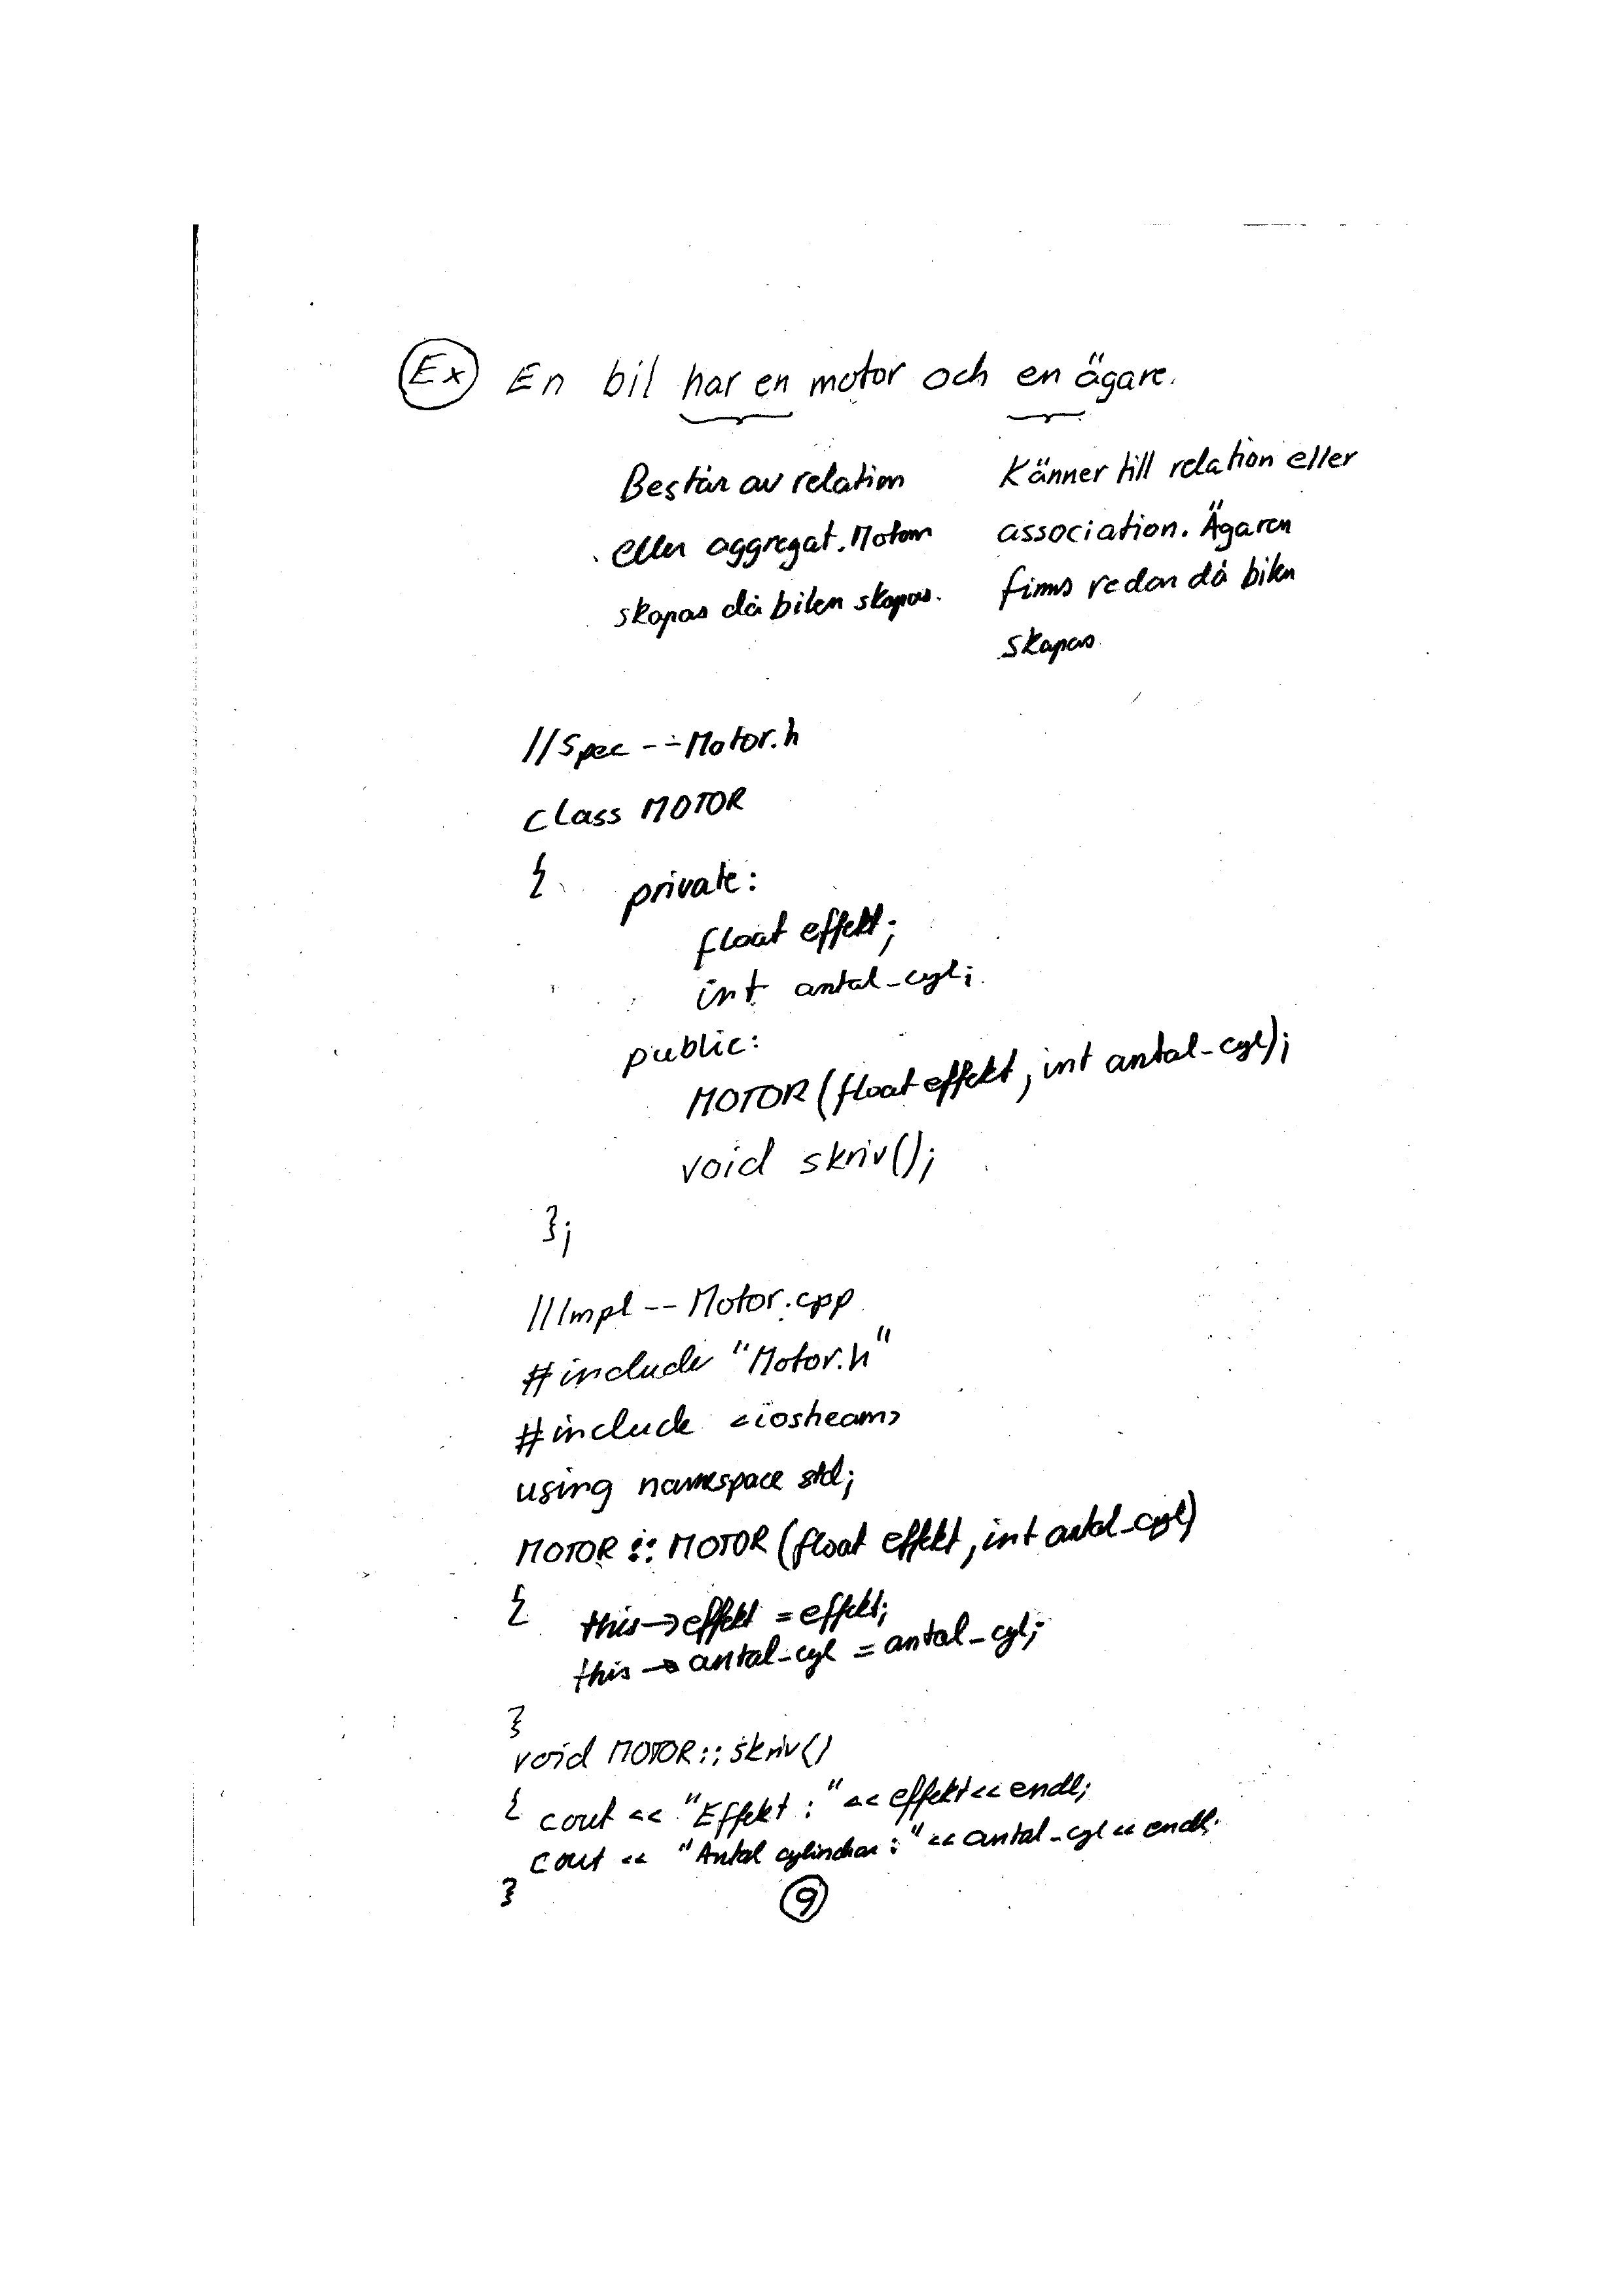 Ex En bil har en motor och en ägare.
Består av relation
eller aggregat. Motorn
skapas då bilen skapas.
Känner till relation eller
association. Ägaren
finns redan då bilen
skapas
//Spec -- Motor.h
class MOTOR
{ private:
float effekt;
int antal_cyl;
public:
MOTOR (float effekt, int antal_cyl);
void skriv();
};
//Impl -- Motor.cpp
#include "Motor.h"
#include <iostream>
using namespace std;
MOTOR :: MOTOR (float effekt, int antal_cyl)
{ this->effekt = effekt;
this->antal_cyl = antal_cyl;
}
void MOTOR :: skriv()
{ cout << "Effekt : " << effekt << endl;
cout << "Antal cylindrar : " << antal_cyl << endl;
}
9